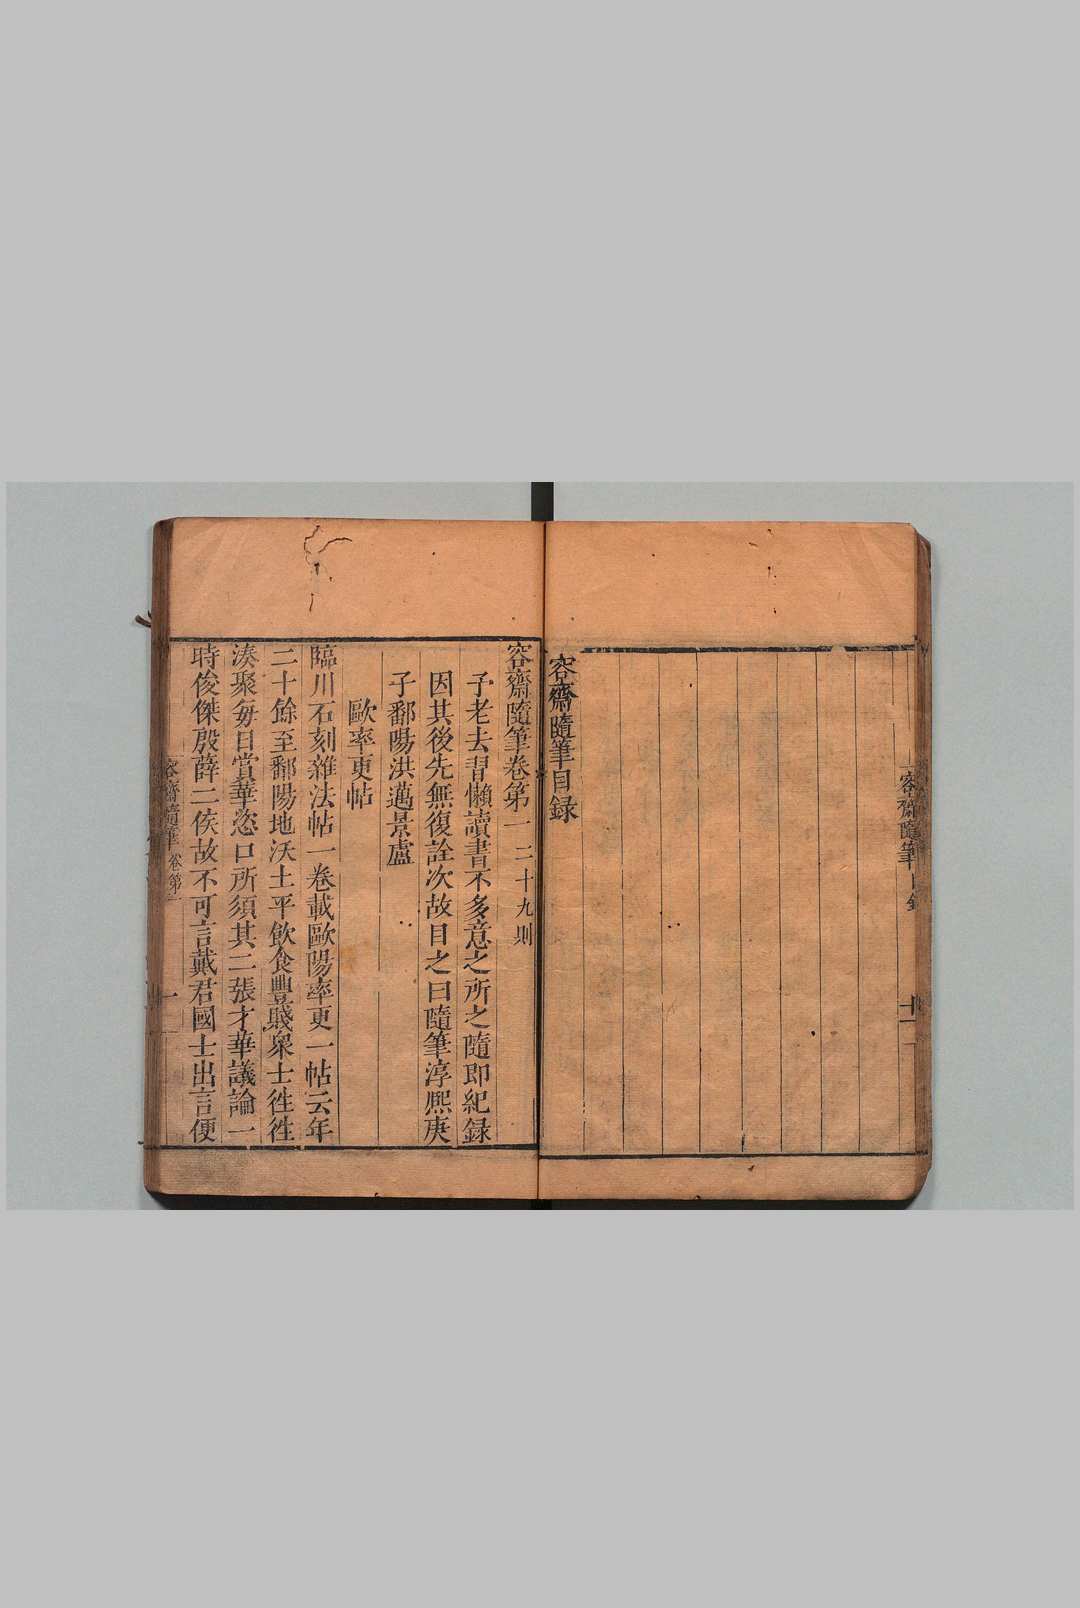 容齋隨筆目録
十一
容齋隨筆目録
容齋隨筆卷第一 二十九則
予老去習懶讀書不多意之所之隨即紀録
因其後先無復詮次故目之曰隨筆淳熙庚
子鄱陽洪邁景盧
歐率更帖
臨川石刻雜法帖一卷載歐陽率更一帖云年
二十餘至鄱陽地沃土平飲食豐賤衆士徃徃
湊聚每日賞華恣口所須其二張才華議論一
時俊傑殷薛二侯故不可言戴君國士出言便
容齋隨筆卷第一
一